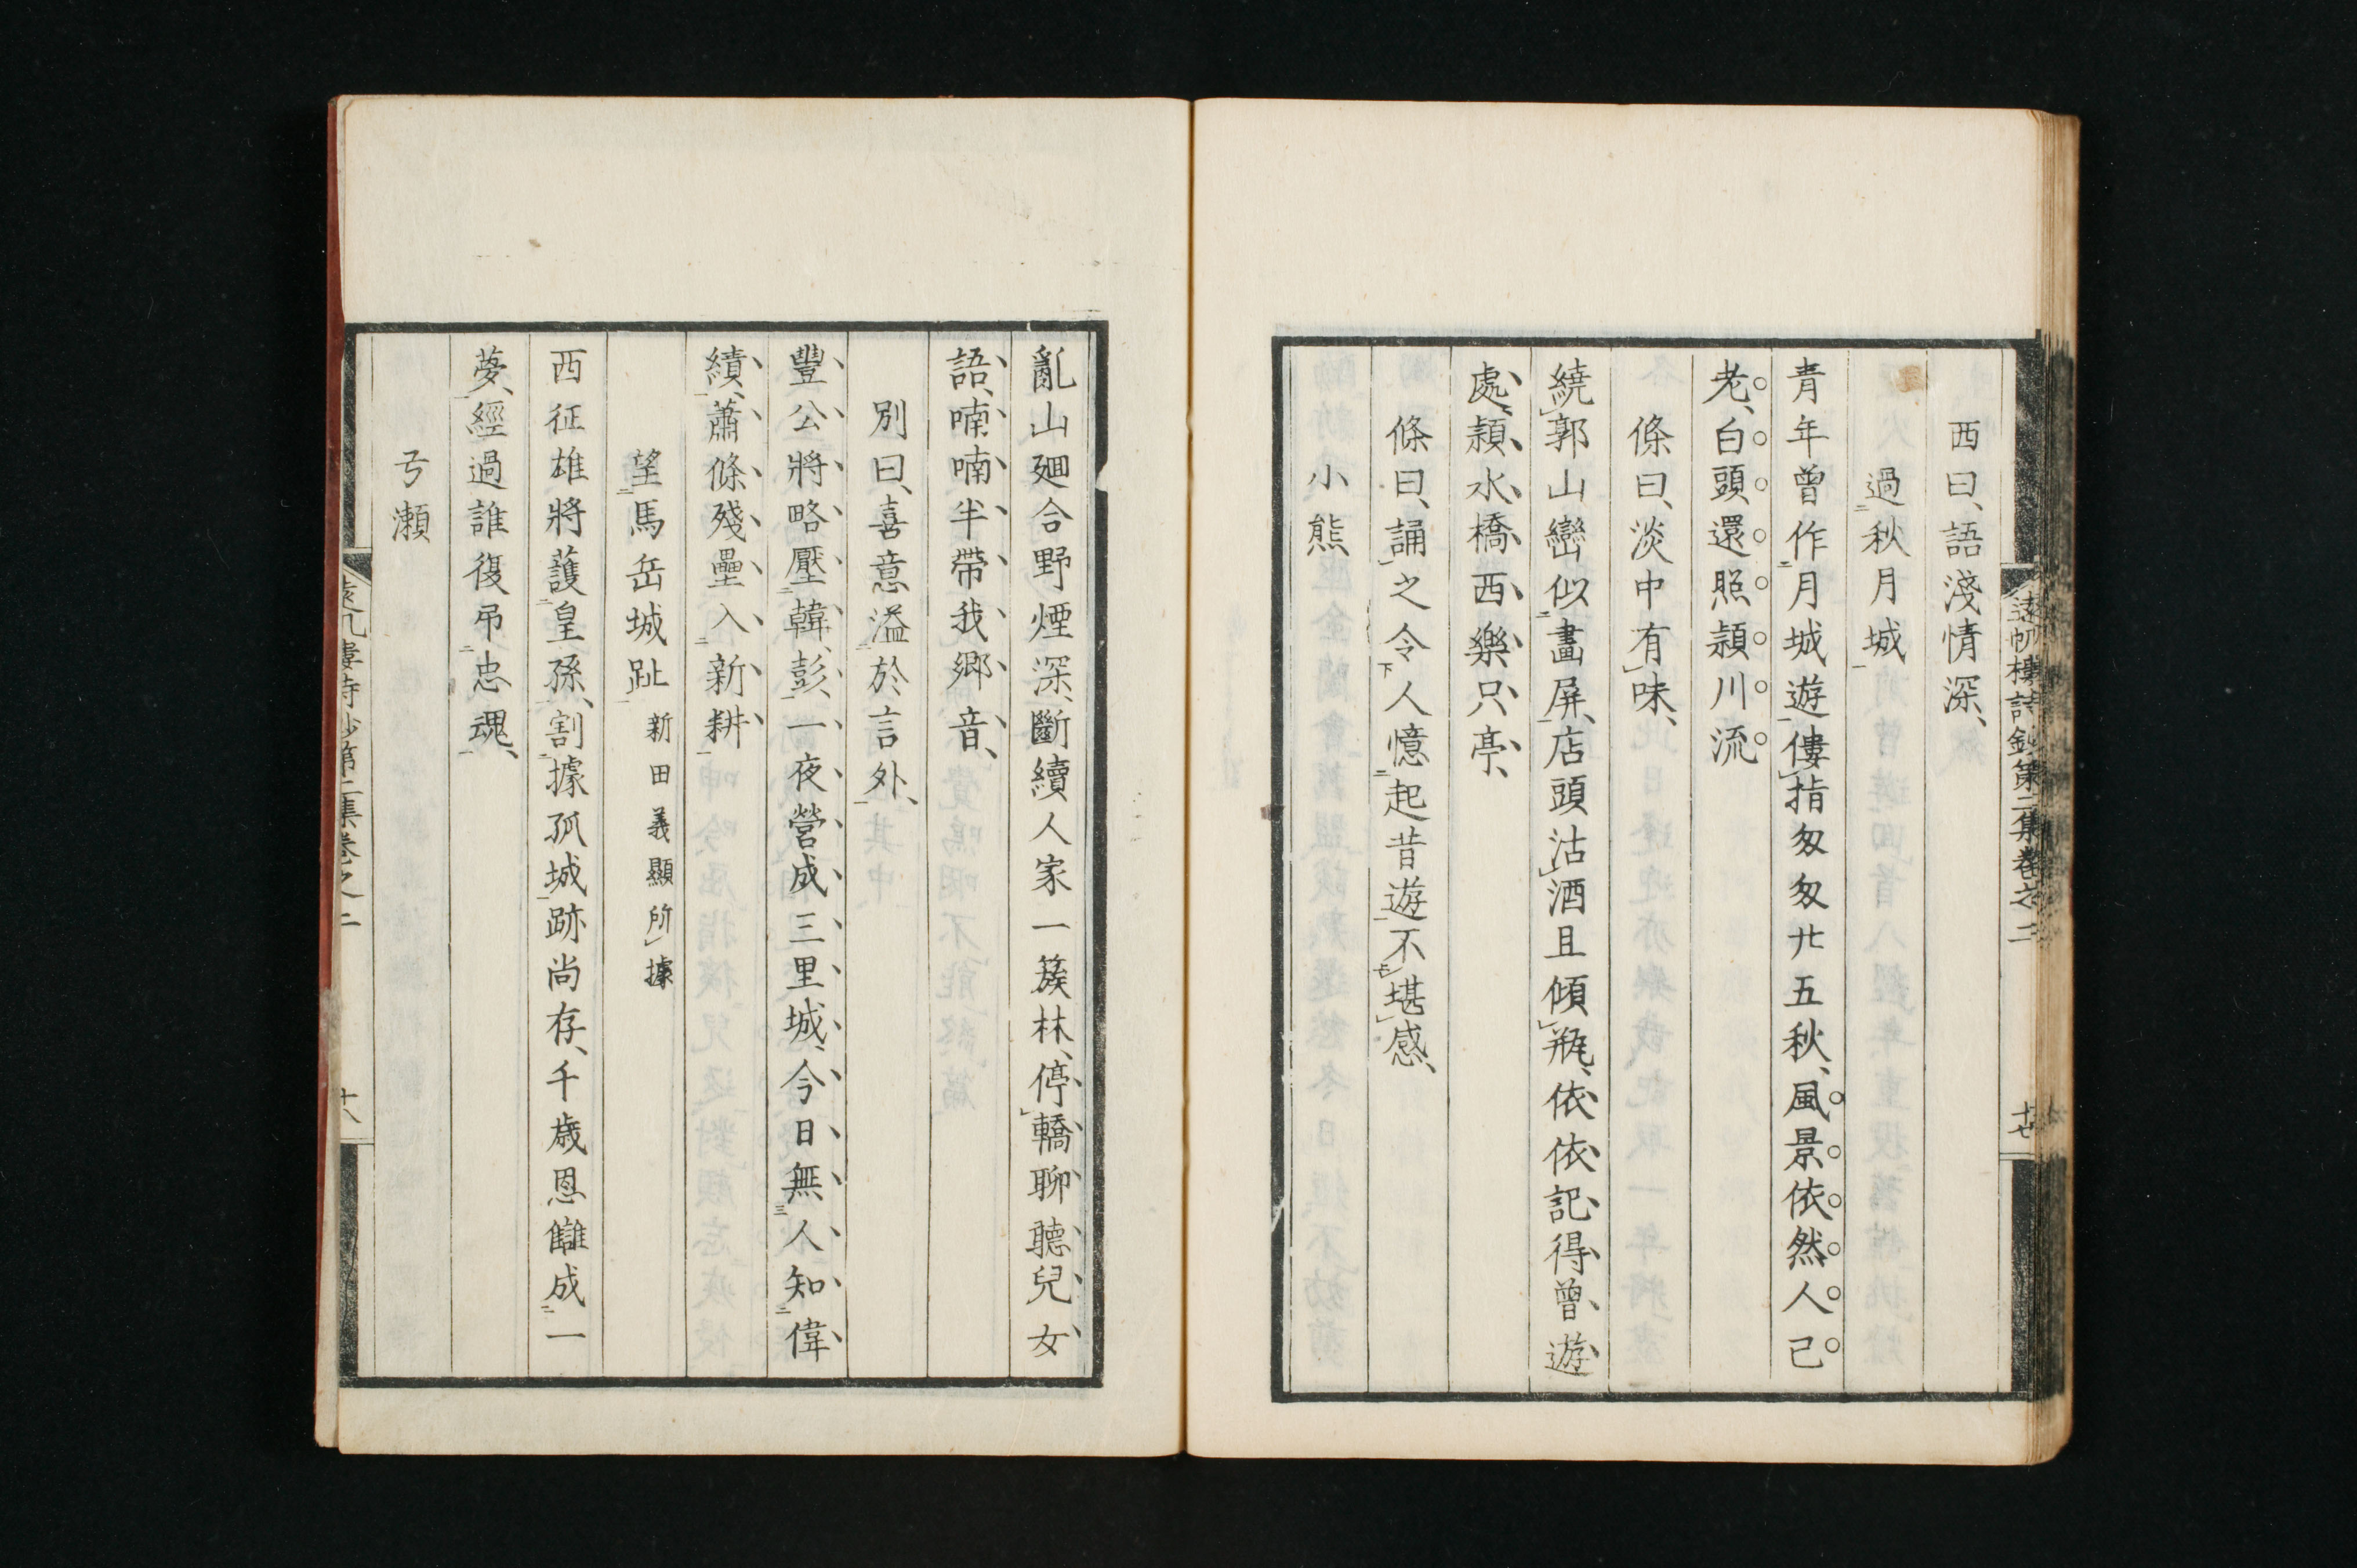 遠帆樓詩鈔第二集卷之二
十七
西曰、語淺情深、
過二秋月城一
青年曾作二月城遊一僂指匆匆廿五秋、風景依然人已
老、白頭還照潁川流
條曰、淡中有味、
繞郭山巒似二畫屏一、店頭沽酒且傾瓶、依依記得曾遊
處、潁水橋西樂只亭、
條曰、誦之令下人憶二起昔遊一不上堪感、
小熊
亂山廻合野煙深、斷續人家一簇林、停轎聊聽兒女
語、喃喃半帶我鄉音、
別曰、喜意溢二於言外一、
豐公將略壓二韓彭一、一夜營成三里城、今日無三人知二偉
績一、蕭條殘壘入二新耕一
望二馬岳城趾一新田義顯所據
西征雄將護二皇孫一、割據孤城跡尚存、千歲恩讎成二一
夢一、經過誰復弔二忠魂一、
弓瀨
遠帆樓詩鈔第二集卷之二
十八